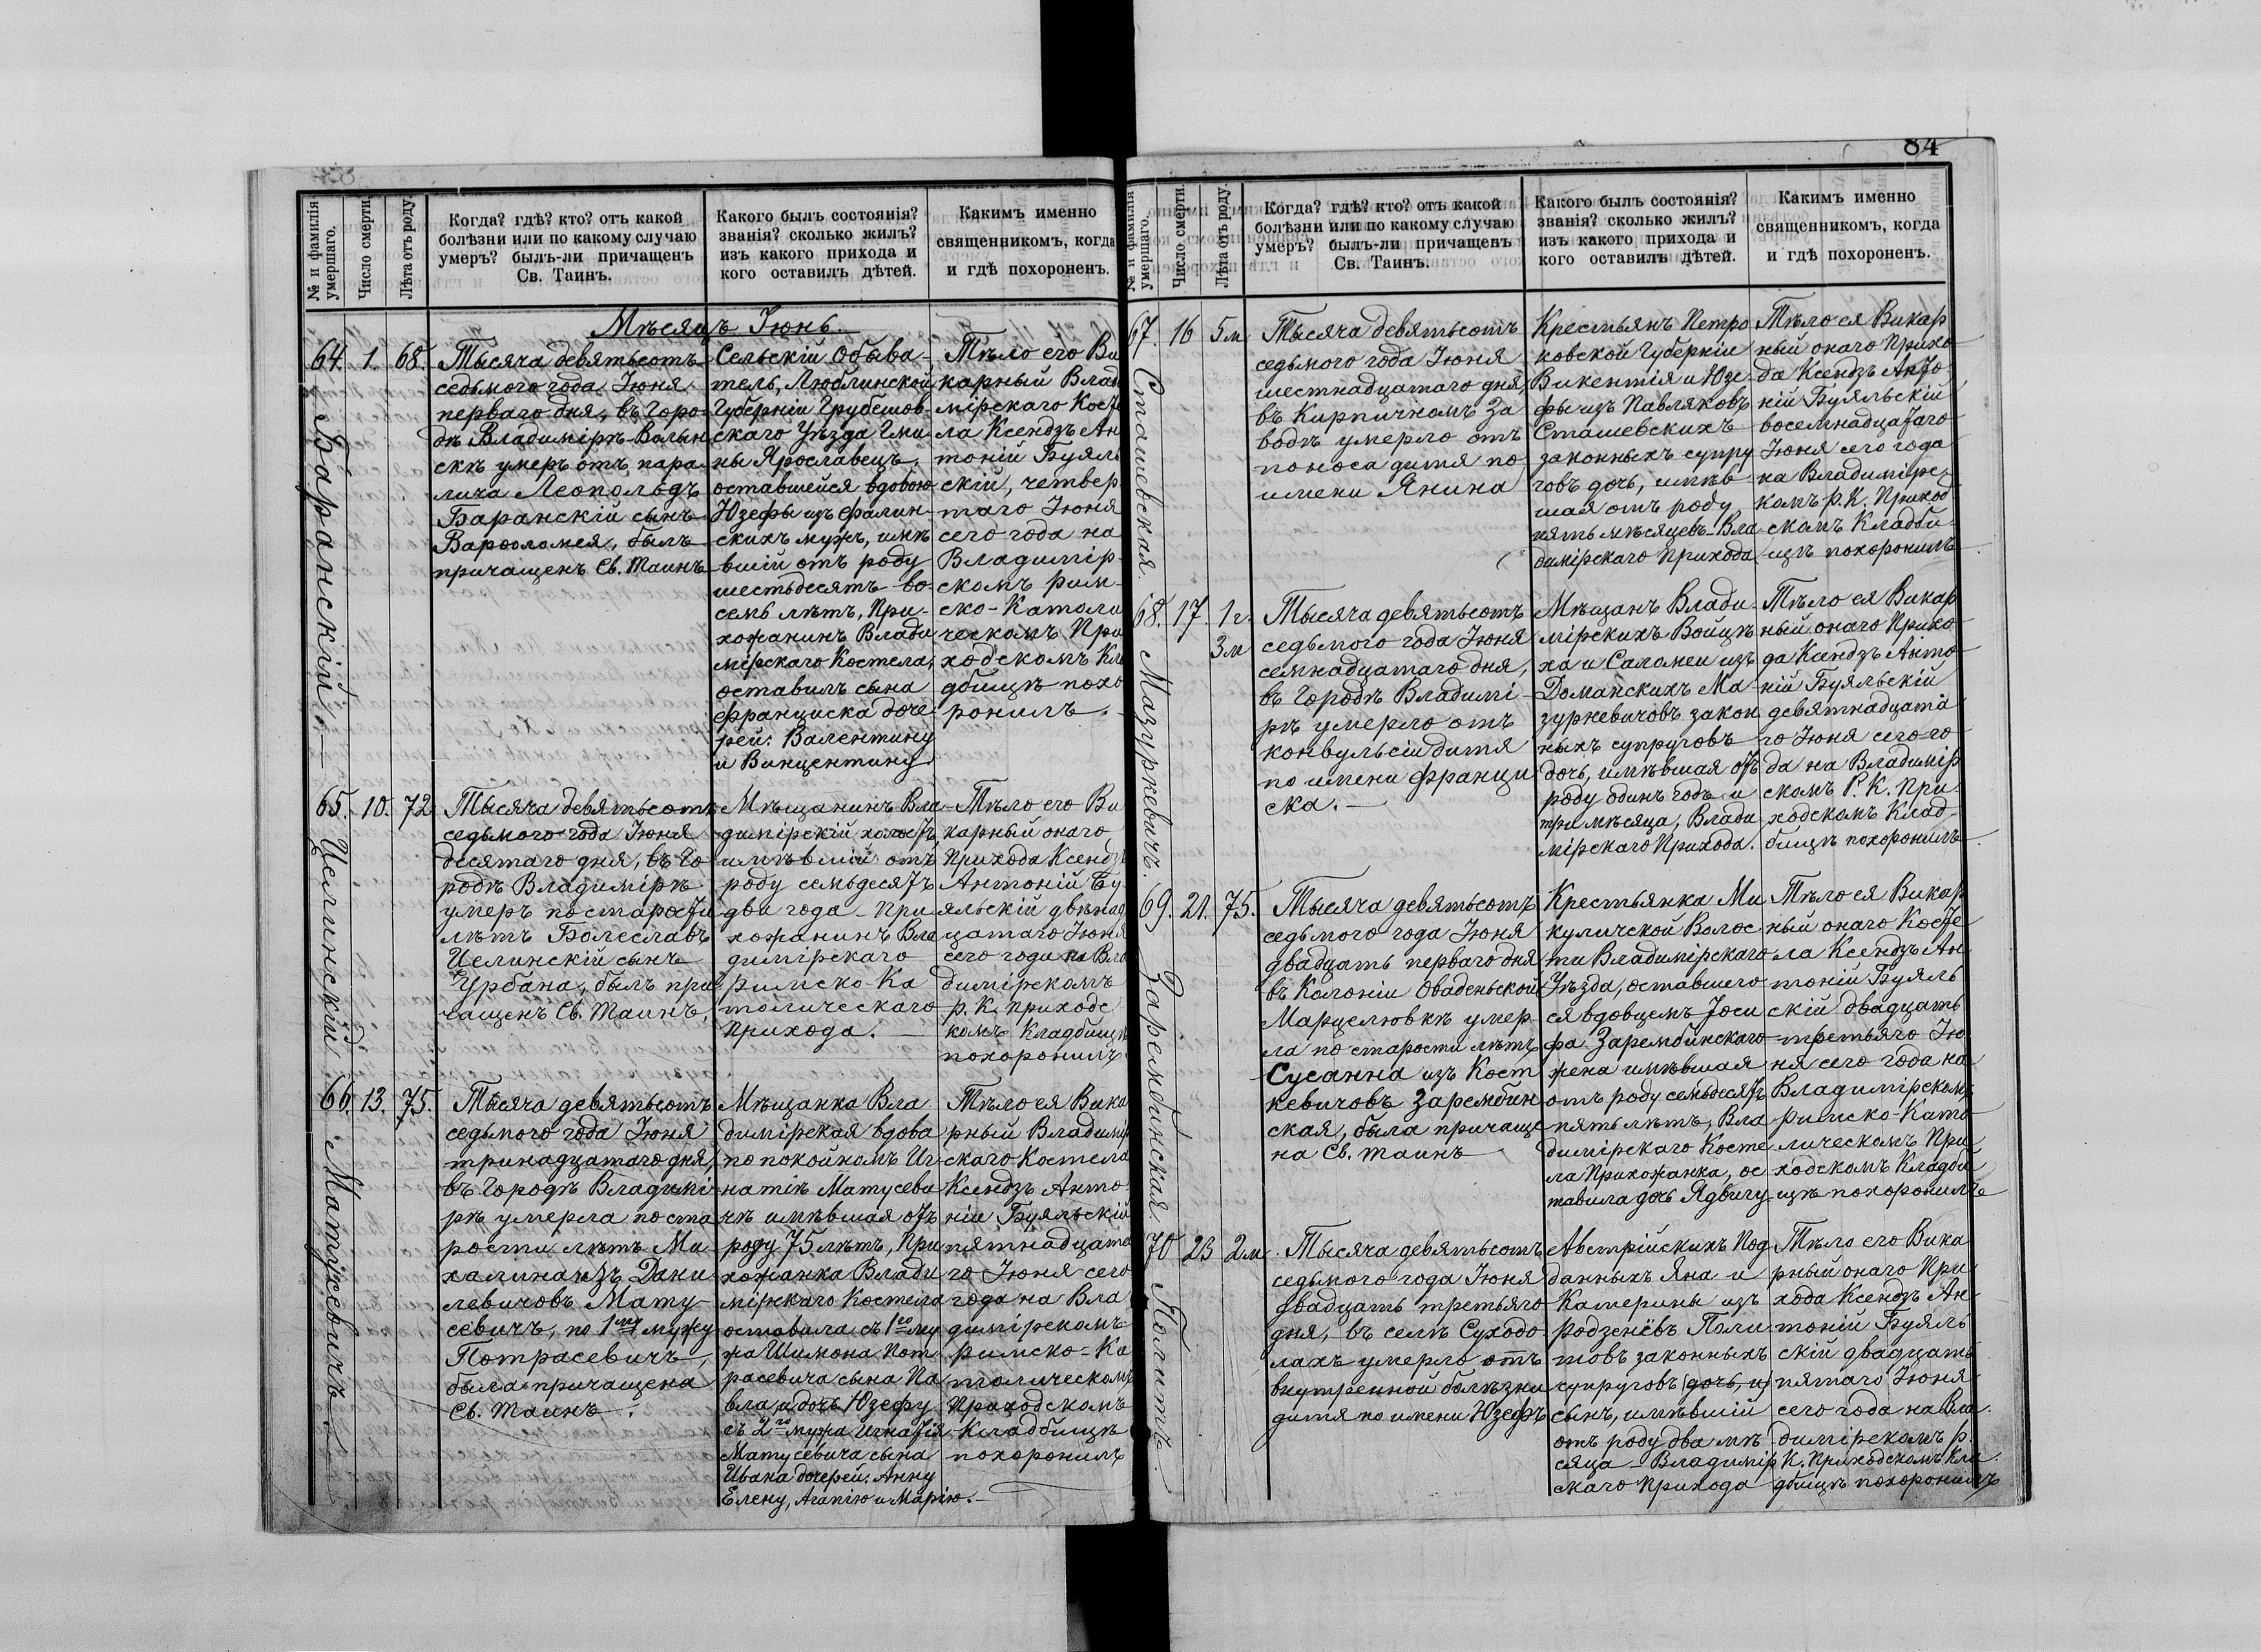 84
№ и фамилія умершаго.
Число смерти.
Лѣта отъ роду.
Когда? гдѣ? кто? отъ какой
болѣзни или по какому случаю
умеръ? былъ-ли причащенъ
Св. Таинъ.
Какого былъ состоянія?
званія? сколько жилъ?
изъ какого прихода и
кого оставилъ дѣтей.
Какимъ именно
священникомъ, когда
и гдѣ похороненъ.
Мѣсяцъ Іюнь
64. Баранскій
1.
68.
Тысяча девятьсотъ
седьмого года Іюня
перваго дня, въ Горо-
дѣ Владимірѣ-Волын
скѣ умеръ отъ пара-
лича Леопольдъ
Баранскій сынъ
Варѳоломея, былъ
причащенъ Св. Таинъ
Сельскій Обыва-
тель, Люблинской
Губерніи Грубешов-
скаго Уѣзда Гми-
ны Ярославецъ,
оставшейся вдовою
Юзефы изъ Фалин-
скихъ мужъ, имѣ
вшій отъ роду
шестьдесятъ во-
семь лѣтъ, При-
хожанинъ Влади
мірскаго Костела,
оставилъ сына
Франциска доче-
рей: Валентину
и Винцентину
Тѣло его Ви
карный Влад
мірскаго Косте
ла Ксендзъ Ан
тоній Буяль
скій, четвер
таго Іюня
сего года на
Владимір-
скомъ Рим-
ско-Католи
ческомъ При
ходскомъ Кла
дбищѣ похо
ронилъ.
65. Целинскій
10.
72
Тысяча девятьсотъ
седьмого года Іюня
десятаго дня, въ Го-
родѣ Владимірѣ
умеръ по старости
лѣтъ Болеславъ
Целинскій сынъ
Урбана, былъ при
чащенъ Св. Таинъ,
Мѣщанинъ Вла
димірскій холостъ,
имѣвшій отъ
роду семьдесятъ
два года При
хожанинъ Вла
димірскаго
Римско-Ка
толическаго
Прихода.
Тѣло его Ви
карный онаго
Прихода Ксендзъ
Антоній Бу-
яльскій двѣнад
цатаго Іюня
сего года на Вла
димірскомъ
Р. К. Приходс
комъ Кладбищѣ
похоронилъ
66. Матусевичъ
13.
75.
Тысяча девятьсотъ
седьмого года Іюня
тринадцатаго дня,
въ Городѣ Владимі-
рѣ умерла по ста
рости лѣтъ Ми-
халина изъ Дани
левичовъ Мату-
севичъ, по 1му мужу
Потрасевичъ,
была причащена
Св. Таинъ.
Мѣщанка Вла
димірская вдова
по покойномъ Иг-
натіѣ Матусеви
чѣ имѣвшая отъ
роду 75 лѣтъ, При
хожанка Влади
мірскаго Костела
оставила съ 1го му
жа Шимона Пот
расевича сына Па
вла, и дочь Юзефу
съ 2го мужа Игнатія
Матусевича сына
Ивана дочерей: Анну
Елену, Агапію и Марію.
Тѣло ея Вика
рный Владимір
скаго Костела
Ксендзъ Анто
ній Буяльскій
пятнадцата
го Іюня сего
года на Вла
димірскомъ
Римско-Ка
толическомъ
Приходскомъ
Кладбищѣ
похоронилъ
№ и фамилія умершаго.
Число смерти.
Лѣта отъ роду.
Когда? гдѣ? кто? отъ какой
болѣзни или по какому случаю
умеръ? былъ-ли причащенъ
Св. Таинъ.
Какого былъ состоянія?
званія? сколько жилъ?
изъ какого прихода и
кого оставилъ дѣтей.
Какимъ именно
священникомъ, когда
и гдѣ похороненъ.
67. Сташевская.
16
5 м
Тысяча девятьсотъ
седьмого года Іюня
шестнадцатаго дня,
въ Кирпичномъ За
водѣ умерло отъ
поноса дитя по
имени Янина
Крестьянъ Петро
ковской Губерніи
Викентія и Юзе-
фы изъ Павляковъ
Сташевскихъ
законныхъ супру
говъ дочь, имѣв
шая отъ роду
пять мѣсяцевъ Вла
димірскаго Прихода
Тѣло ея Викар
ный онаго Прихо
да Ксендзъ Анто
ній Буяльскій
восемнадцатаго
Іюня сего года
на Владимірс
комъ Р. К. Приход
скомъ Кладби-
щѣ похоронилъ
68. Мазуркевичъ.
17.
1 г.
3 м
Тысяча девятьсотъ
седьмого года Іюня
семнадцатаго дня,
въ Городѣ Владимі-
рѣ умерло отъ
конвульсіи дитя
по имени Франци
ска.
Мѣщанъ Влади-
мірскихъ Войцѣ
ха и Саломеи изъ
Доманскихъ Ма-
зуркевичовъ закон
ныхъ супруговъ
дочь, имѣвшая отъ
роду одинъ годъ и
три мѣсяца, Влади
мірскаго Прихода.
Тѣло ея Викар
ный онаго Прихо
да Ксендзъ Анто
ній Буяльскій
девятнадцата
го Іюня сего го
да на Владимір
скомъ Р. К. При
ходскомъ Клад
бищѣ похоронилъ
69. Зарембинская.
21.
75.
Тысяча девятьсотъ
седьмого года Іюня
двадцать перваго дня
въ Колоніи Оваденьской
Марцелювкѣ умер-
ла по старости лѣтъ
Сусанна изъ Кост
кевичовъ Зарембин
ская, была причаще
на Св. Таинъ
Крестьянка Ми
куличской Волос
ти Владимірскаго
Уѣзда, оставшего
ся вдовцемъ Іоси
фа Зарембинскаго
жена имѣвшая
отъ роду семьдесятъ
пять лѣтъ, Вла
димірскаго Косте
ла Прихожанка, ос
тавила дочь Ядвигу
Тѣло ея Викар
ный онаго Косте
ла Ксендзъ Ан-
тоній Буяль
скій двадцать
третьяго Ію
ня сего года на
Владимірскомъ
Римско-Като
лическомъ При
ходскомъ Кладби
щѣ похоронилъ
70 Политъ
23
2 м
Тысяча девятьсотъ
седьмого года Іюня
двадцать третьяго
дня, въ селѣ Суходо-
лахъ умерло отъ
внутренной болѣзни
дитя по имени Юзефъ
Австрійскихъ Под
данныхъ Яна и
Катерины изъ
Родзенёвъ Поли-
товъ законныхъ
супруговъ (дочь, и)
сынъ, имѣвшій
отъ роду два мѣ-
сяца Владимір
скаго Прихода
Тѣло его Вика
рный онаго При
хода Ксендзъ Ан-
тоній Буяль
скій двадцать
пятаго Іюня
сего года на Вла-
димірскомъ Р.
К. Приходскомъ Кла
дбищѣ похоронилъ